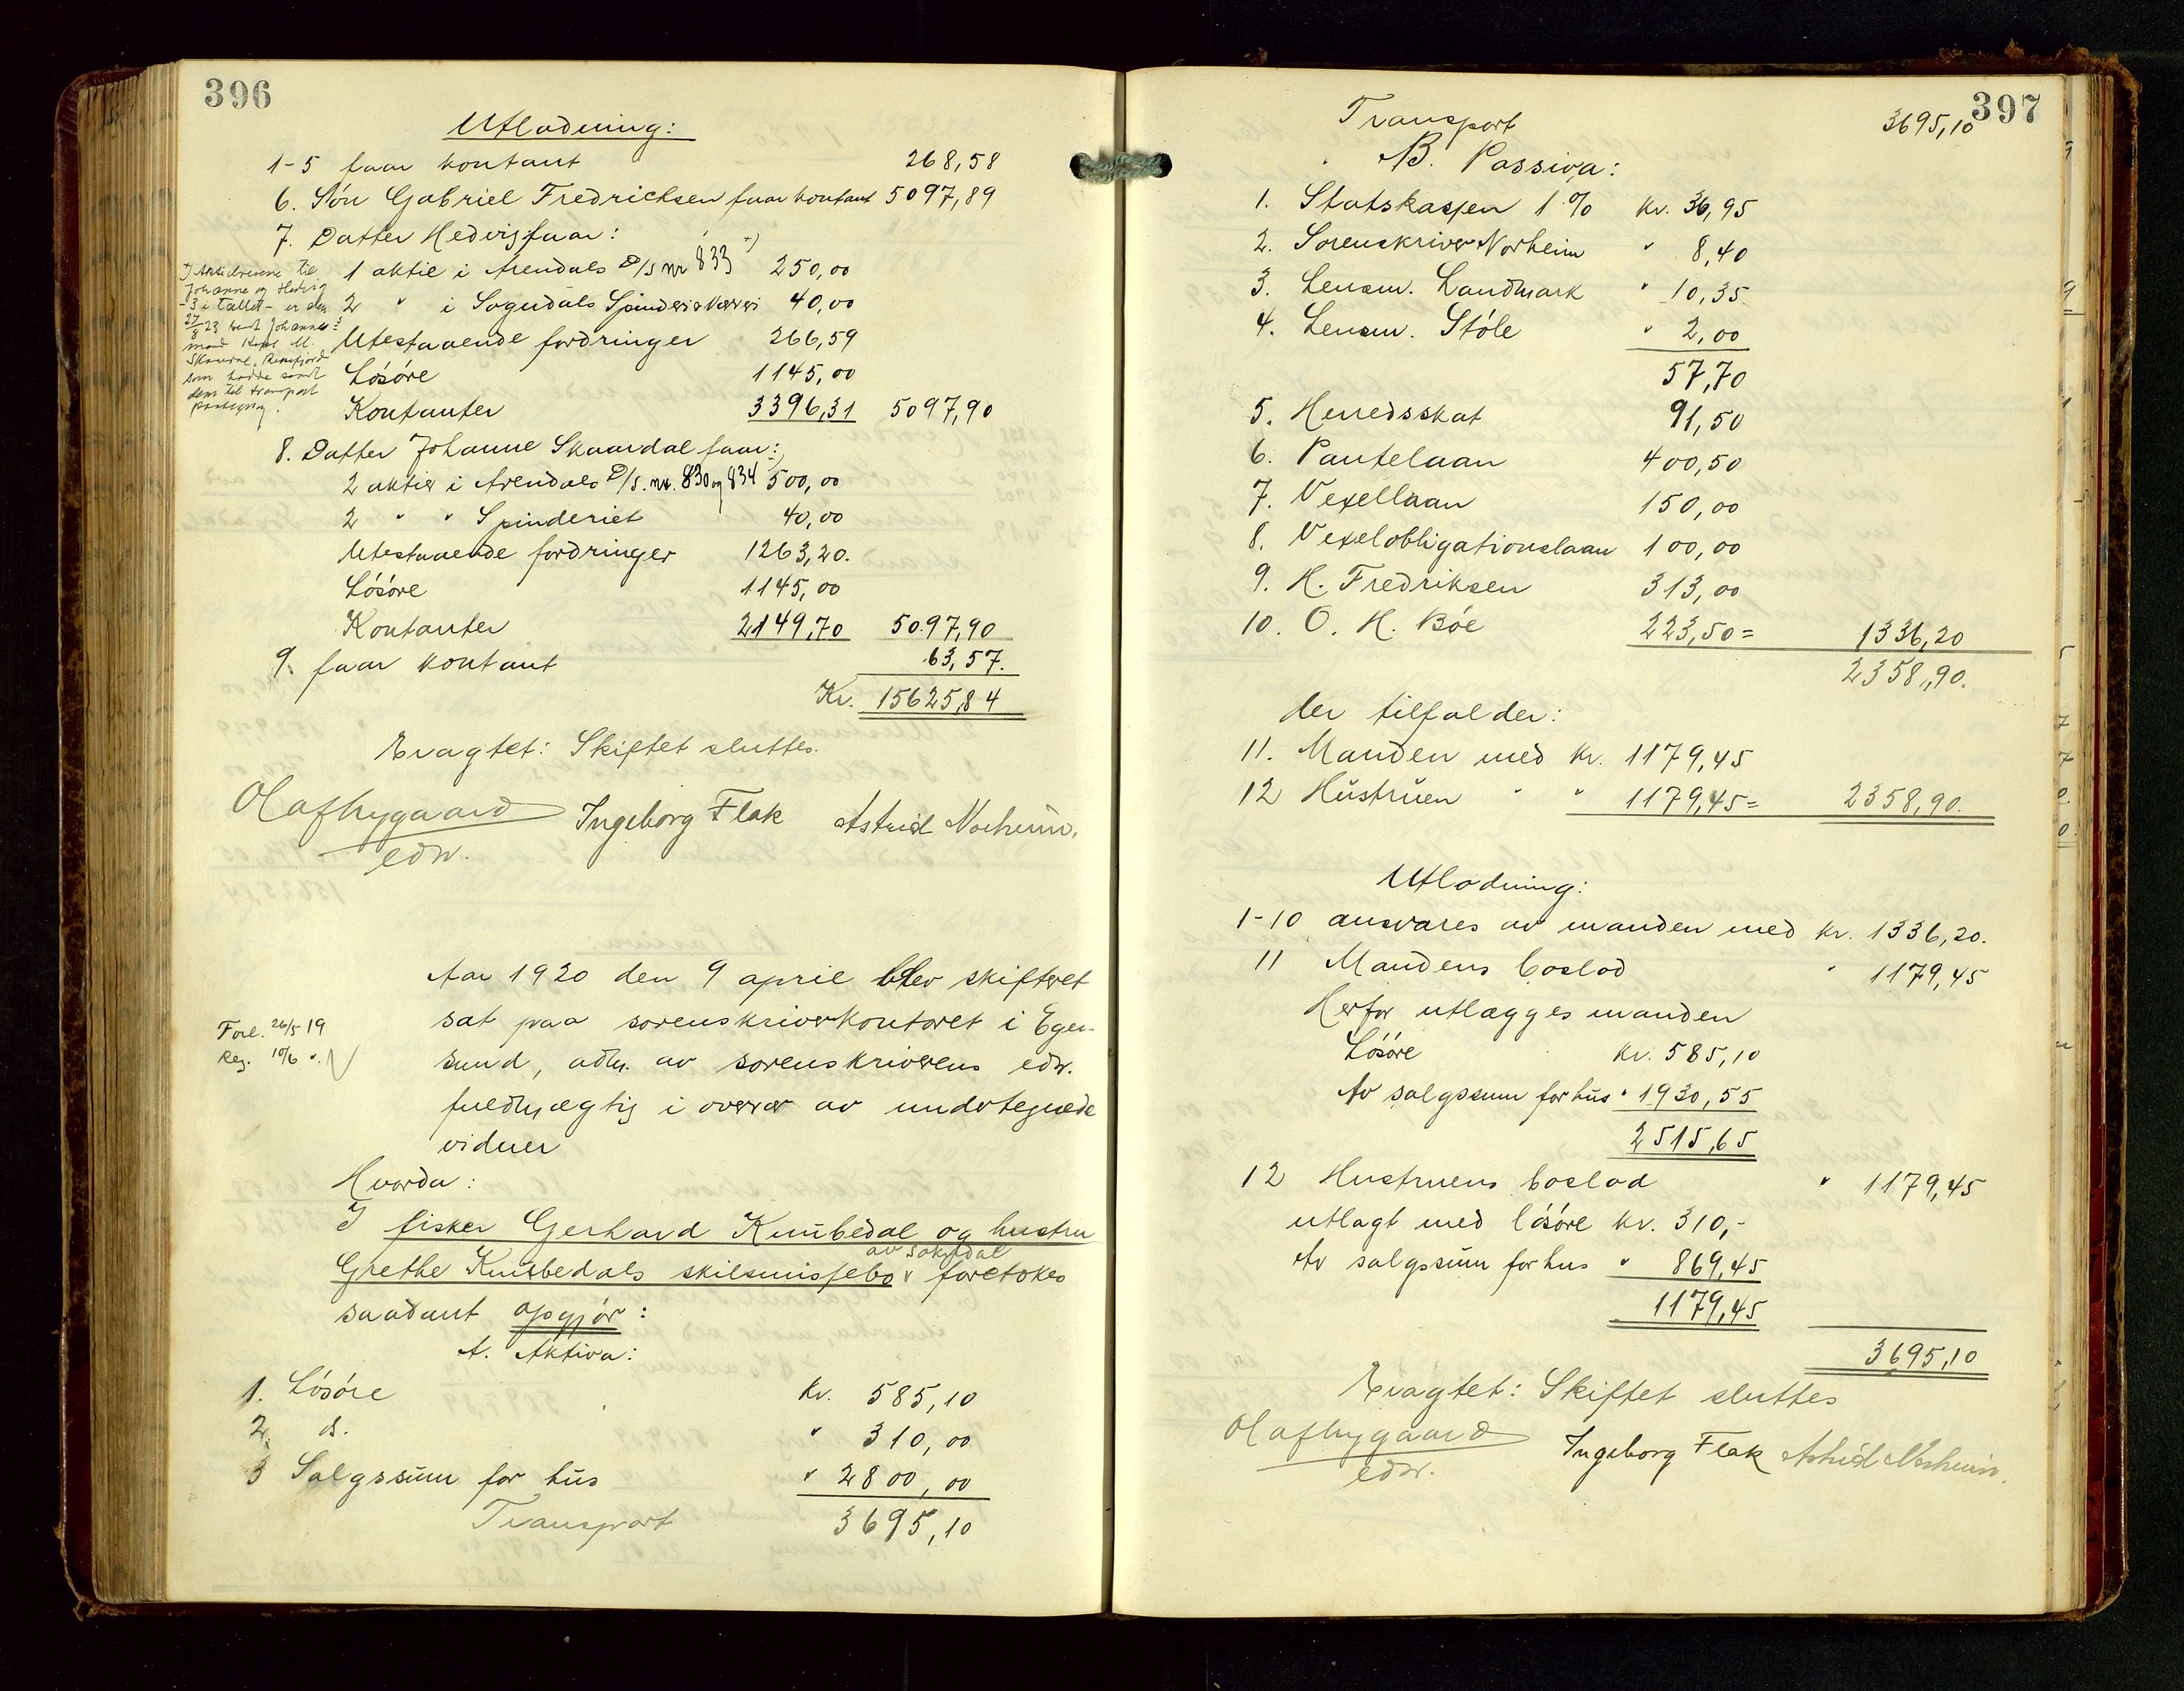 396
Utlodning:
1-5 faar kontant 268,58
6. Søn Gabriel Fredricksen faar kontant 5097,89
7. Datter Hedvig faar:
1 aktie i Arendals D/S nr 833 +) 250,00
+) Aktiebrevene til
Johanne og Hedvig
- 3 i tallet - er den
27/8 23 sendt Johannes
mand Kapt. M.
Skaardal, Rekefjord
som hadde sendt
dem til transport
paategning.
2 " i Sogndals Spinderi & Væveri 40,00
Utestaaende fordringer 266,59
Løsøre 1145,00
Kontanter 3396,31 5097,90
8. Datter Johanne Skaardal faar:
2 aktier i Arendals D/S. nr. 830 og 834 500,00
2 " " Spinderiet 40,00
Utestaaende fordringer 1263,20.
Løsøre 1145,00
Kontanter 2149,70 5097,90
9. faar kontant 63,57.
Kr. 15625,84
Eragtet: Skiftet sluttes.
Olaf Nygaard Ingeborg Flak Astrid Norheim.
edsv.
Aar 1920 den 9 april blev skifteret
sat paa sorenskriverkontoret i Eger-
sund, adm. av sorenskriverens edsv.
fuldmægtig i overvær av undertegnede
vidner
Forel. 26/5 19
Reg. 10/6 ".
Hvorda:
I fisker Gerhard Knubedal og hustru
Grethe Knubedals skilsmissebo av Sokndal foretokes
saadant opgjør:
A. Aktiva:
1. Løsøre Kr. 585,10
2. d. " 310,00
3 Salgssum for hus " 2800,00
Transport 3695,10
397
Transport 3695,10
B. Passiva:
1. Statskassen 1 % Kr. 36,95
2. Sorenskriver Norheim " 8,40
3. Lensm. Landmark " 10,35
4. Lensm. Støle " 2,00
57,70
5. Herredsskat 91,50
6. Pantelaan 400,50
7. Vexellaan 150,00
8. Vexelobligationslaan 100,00
9. H. Fredriksen 313,00
10. O. H. Bøe 223,50 = 1336,20
2358,90.
der tilfalder:
11. Manden med Kr. 1179,45
12 Hustruen " " 1179,45 = 2358,90.
Utlodning:
1-10 ansvares av manden med Kr. 1336,20.
11 Mandens boslod " 1179,45
Herfor utlægges manden
Løsøre Kr. 585,10
Av salgssum for hus " 1930,55
2515,65
12 Hustruens boslod " 1179,45
utlagt med løsøre Kr. 310,-
Av salgssum for hus " 869,45
1179,45
3695,10
Eragtet: Skiftet sluttes
Olaf Nygaard Ingeborg Flak Astrid Norheim.
edsv.